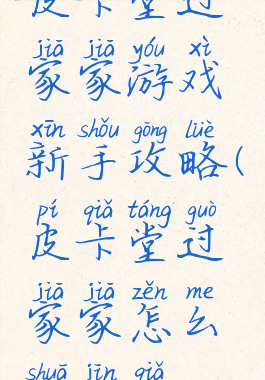 皮卡堂过
jiā jiā yóu xì
家家游戏
xīn shǒu gōng lüè
新手攻略(
pí qiǎ táng guò
皮卡堂过
jiā jiā zěn me
家家怎么
shuā jīn qiǎ